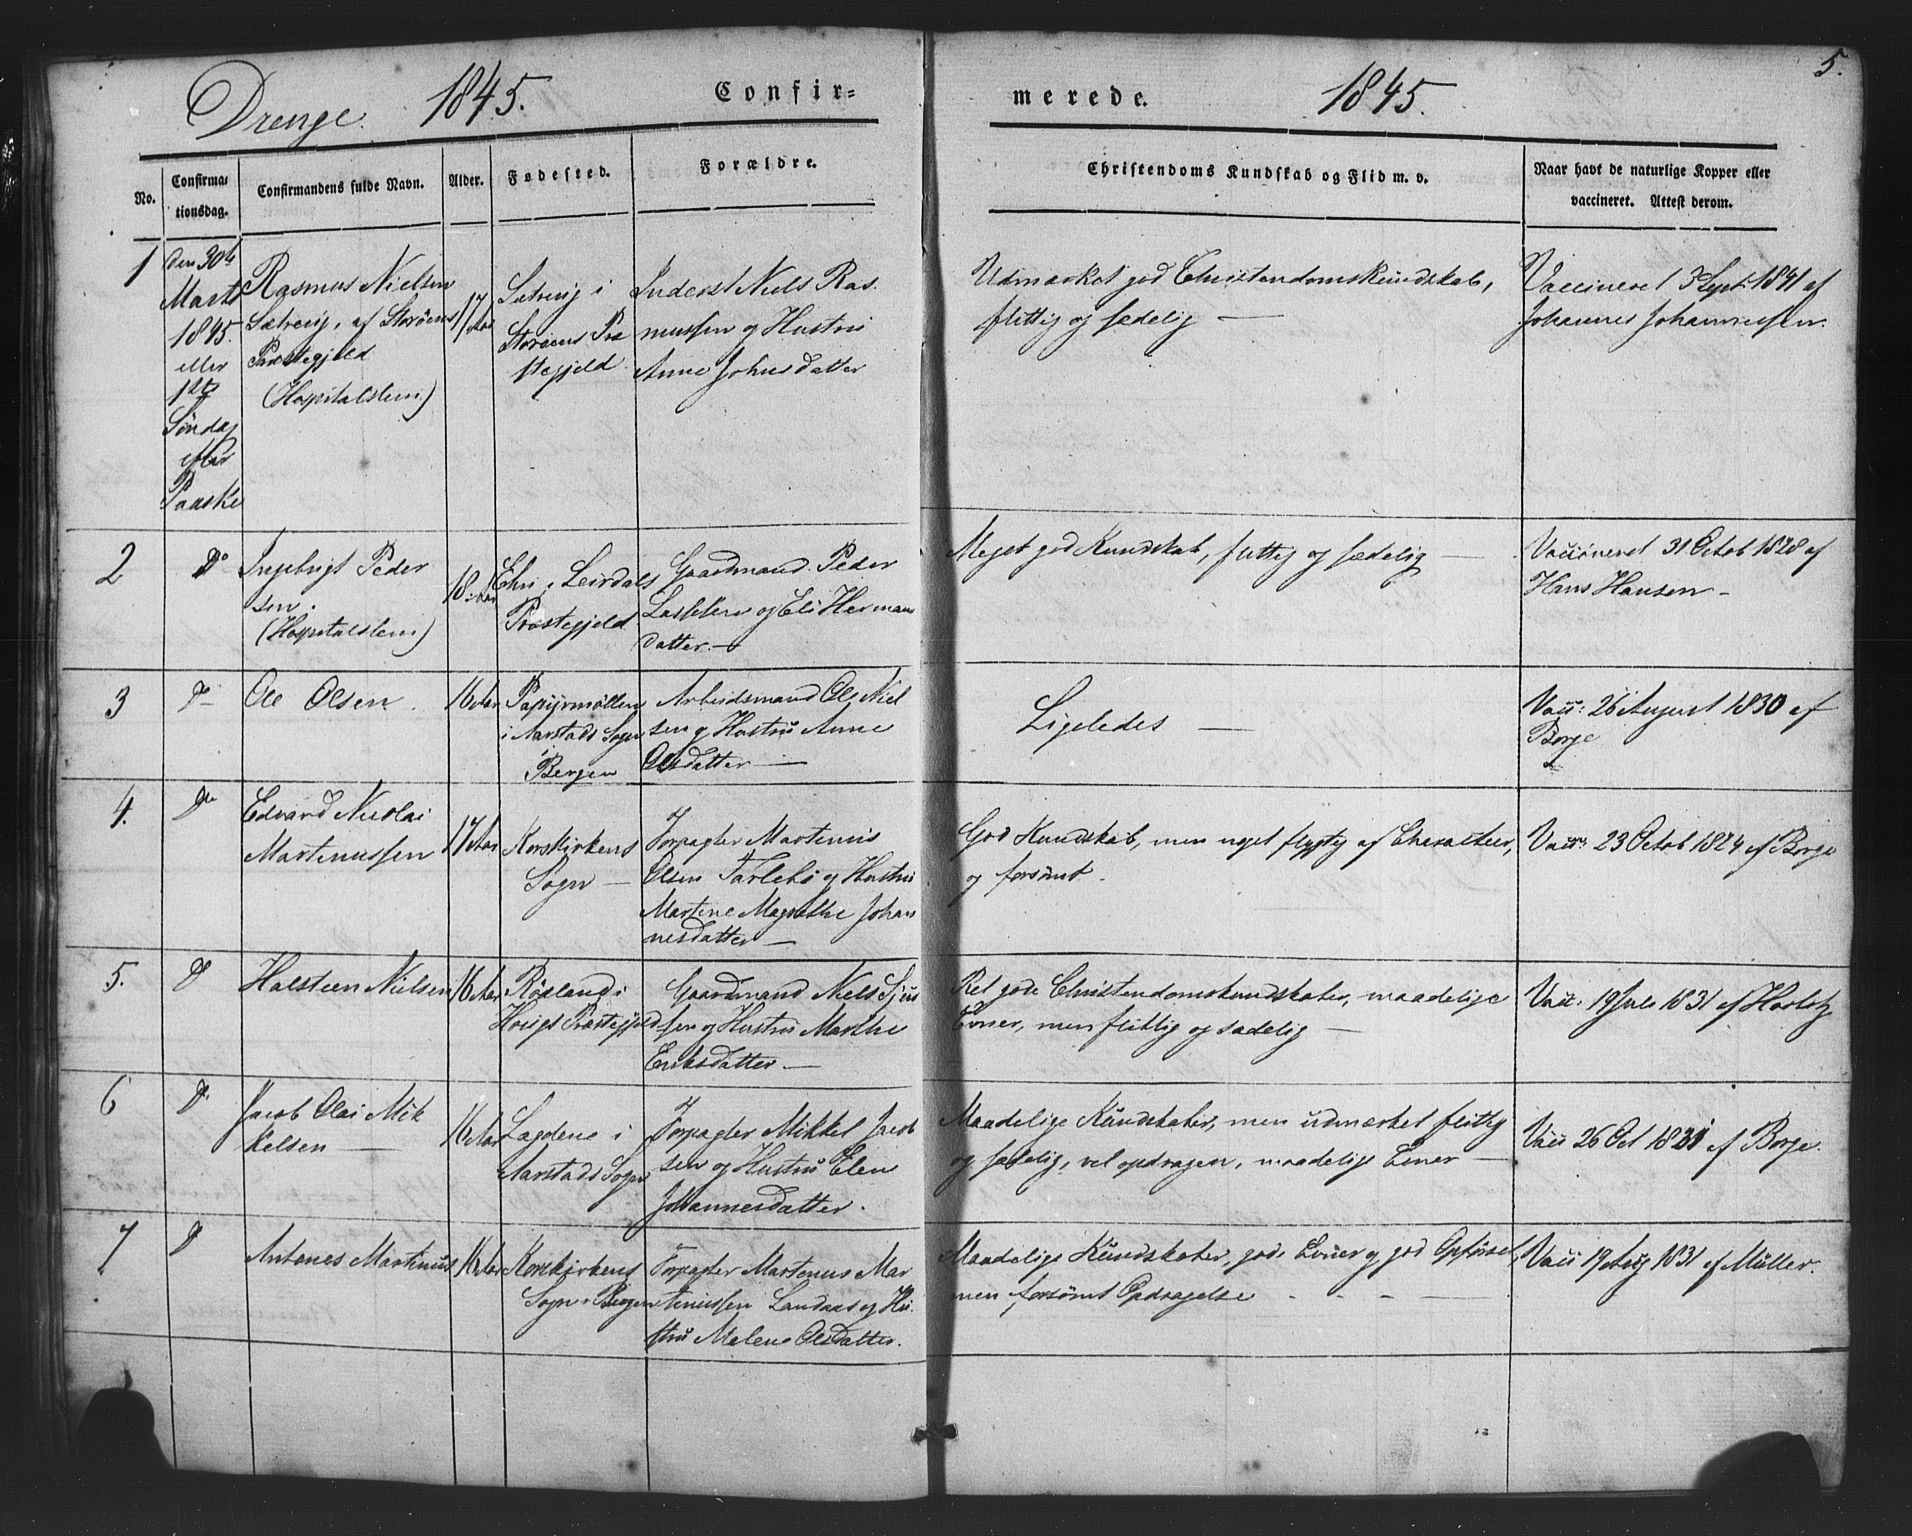 5.
Drenge. 1845. Confir-
merede. 1845.
No. Confirma-tionsdag. Confirmandens fulde Navn. Alder. Fødested. Forældre.
Christendoms Kundskab og Flid m. v. Naar havt de naturlige Kopper eller vaccineret. Attest derom.
1
den 30te
Marts
1845.
eller
1ste
Søndag
efter
Paaske
Rasmus Nielsen
Sætrevig, af Storøens
Præstegjeld
(Hospitalslem.)
17 Aar
Sætrevig i
Storøens Præ
stegjeld
Inderst Niels Ras.
mussen og Hustru
Anne Johnsdatter
Udmærket god Christendomskundskab,
flittig og sædelig —
Vaccineret 3 Sept. 1841 af
Johannes Johannessen.
2
Do
Ingebrigt Peder
sen.
(Hospitalslem)
18 Aar
Ehri i Leirdals
Præstegjeld
Gaardmand Peder
Lassesen og Eli Herman
datter. —
Meget god Kundskab, flittig og sædelig —
Vaccineret 31 Octob 1828 af
Hans Hansen —
3
Do
Ole Olsen.
16 Aar
Papiirmøllen
i Aarstads Sogn
Bergen
Arbeidsmand Ole Niel
sen og Hustru Anne
Olsdatter —
Ligeledes —
Vacc: 26 August 1830 af
Borge
4.
Do
Edvard Nicolai
Martinussen
17 Aar
Korskirkens
Sogn —
Forpagter Martinus
Olsen og Hustru
Martine Magrethe Johan
nesdatter —
God Kundskab, men noget flygtig af Charakteer,
og forsömt.
Vacc: 23 Octob 1824 af Borge
5.
Do
Halsteen Nielsen
16 Aar
Røsland i
Hougs Præstegjeld
Gaardmand Niels Sjur
sen og Hustru Marthe
Eriksdatter —
Ret gode Christendomskundskaber, maadelige
Evner, men flittig og sædelig —
Vacc: 19 Juli 1831 af
6
Do
Jacob Olai Mik
kelsen —
16 Aar
Lægdene i
Aarstads Sogn
Forpagter Mikkel Jacob
sen og Hustru Elen
Johannesdatter.
Maadelige Kundskaber, men udmærket flittig
og sædelig, vel opdragen, maadelige Evner —
Vacc 26 Oct 1831 af Borge.
7
Do
Antones Martinus
16 Aar
Korskirkens
Sogn i Bergen
Forpagter Martinus Mar
tinussen Landaas og Hu
stru Malene Olsdatter.
Maadelige Kundskaber, gode Evner og god Opførsel,
men forsömt Opdragelse
Vacc 19 Aug 1831 af Müller.